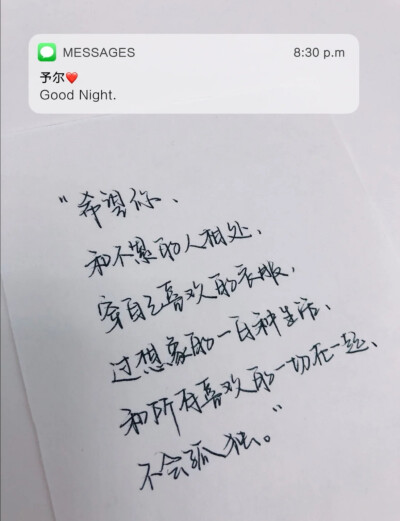 MESSAGES
8:30 p.m
予尔❤️
Good Night.
“希望你、
和不愚的人相处、
穿自己喜欢的衣服、
过想象的一百种生活、
和所有喜欢的一切在一起、
不会孤独。”